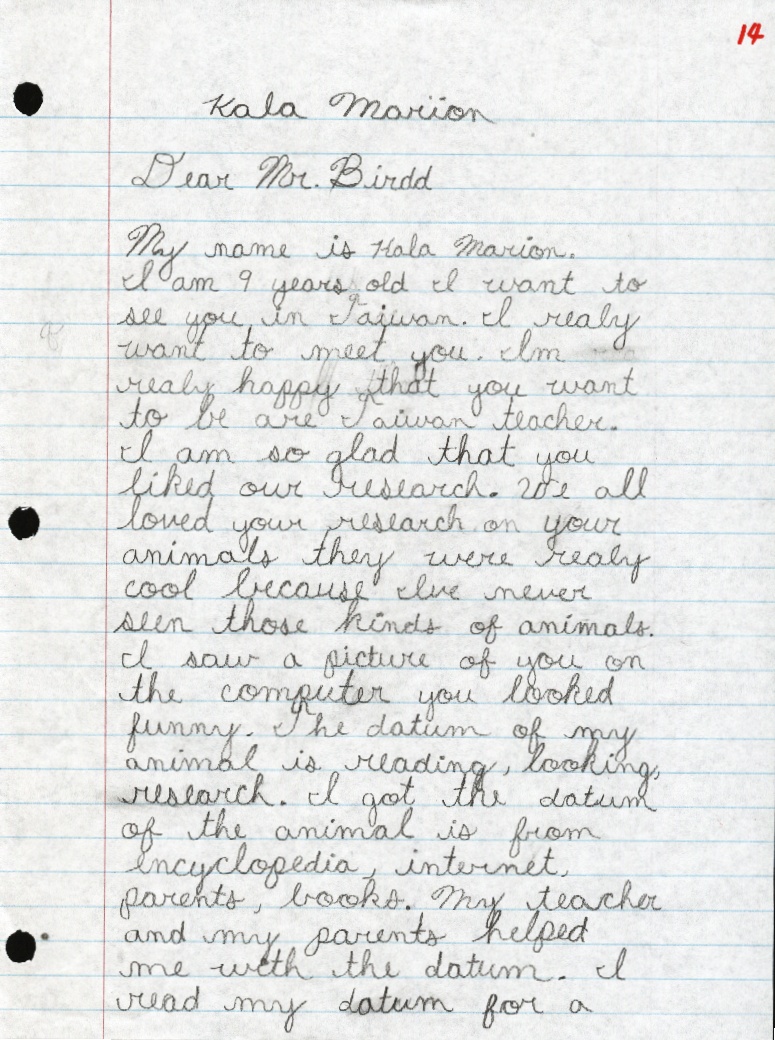 14
Kala Marion
Dear Mr. Birdd
My name is Kala Marion.
I am 9 years old I want to
see you in Taiwan. I realy
want to meet you. I'm
realy happy that you want
to be are Taiwan teacher.
I am so glad that you
liked our research. We all
loved your research on your
animals they were realy
cool because I've never
seen those kinds of animals.
I saw a picture of you on
the computer you looked
funny. The datum of my
animal is reading, looking,
research. I got the datum
of the animal is from
encyclopedia, internet,
parents, books. My teacher
and my parents helped
me with the datum. I
read my datum for a